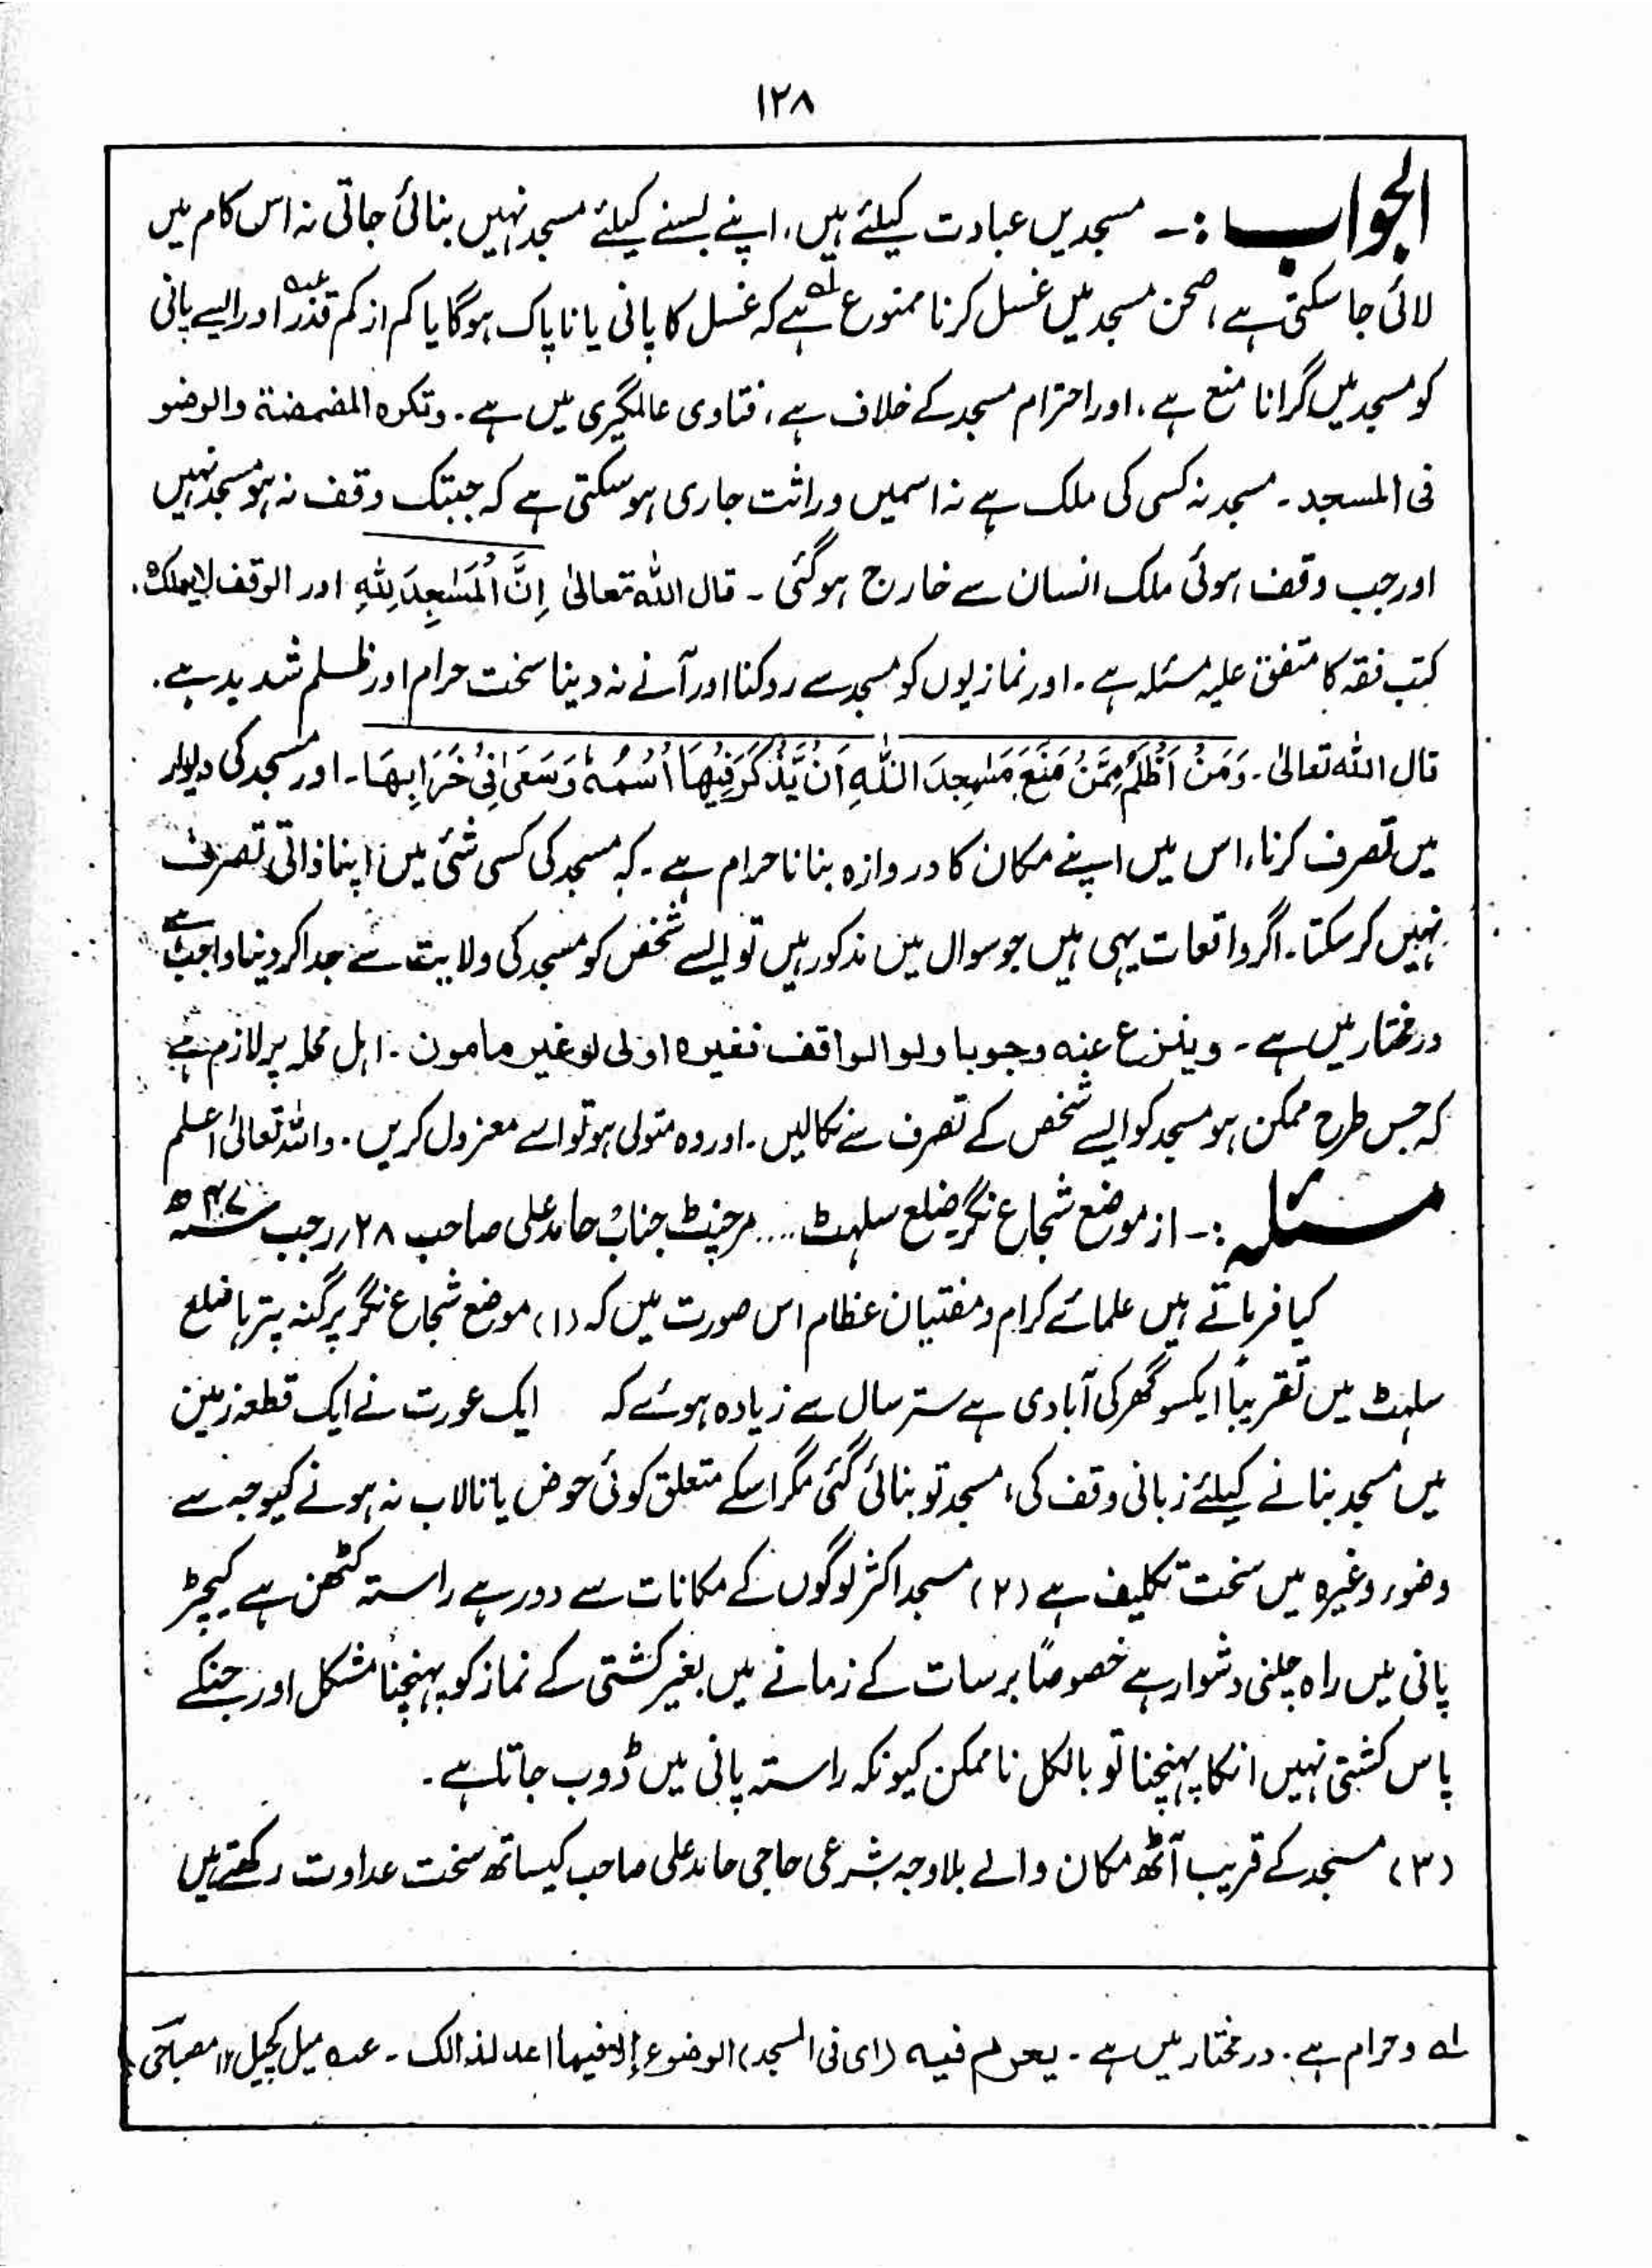 ۱۲۸
الجواب :- مسجدیں عبادت کیلئے ہیں، اپنے بسنے کیلئے مسجد نہیں بنائی جاتی نہ اس کام میں
لائی جا سکتی ہے، صحن مسجد میں غسل کرنا ممنوع ہے کہ غسل کا پانی یا ناپاک ہوگا یا کم از کم قذر عہ اور ایسے پانی
کو مسجد میں گرانا منع ہے، اور احترام مسجد کے خلاف ہے، فتاوی عالمگیری میں ہے۔ وتکرہ المضمضة والوضو
فی المسجد ۔ مسجد نہ کسی کی ملک ہے نہ اسمیں وراثت جاری ہوسکتی ہے کہ جبتک وقف نہ ہو مسجد نہیں
اور جب وقف ہوئی ملک انسان سے خارج ہوگئی ۔ قال اللہ تعالیٰ اِنَّ الْمَسٰجِدَ لِلّٰہِ اور الوقف لایملک،
کتب فقہ کا متفق علیہ مسئلہ ہے۔ اور نمازیوں کو مسجد سے روکنا اور آنے نہ دینا سخت حرام اور ظلم شدید ہے۔
قال اللہ تعالیٰ۔ وَمَنْ اَظْلَمُ مِمَّنْ مَنَعَ مَسٰجِدَ اللّٰہِ اَنْ یُّذْکَرَ فِیْهَا اسْمُهٗ وَسَعٰی فِیْ خَرَابِهَا۔ اور مسجد کی دیوار
میں تصرف کرنا، اس میں اپنے مکان کا دروازہ بنانا حرام ہے۔ کہ مسجد کی کسی شئی میں اپنا ذاتی تصرف
نہیں کر سکتا۔ اگر واقعات یہی ہیں جو سوال میں مذکور ہیں تو ایسے شخص کو مسجد کی ولایت سے جدا کر دینا واجب ہے
درمختار میں ہے۔ وینزع عنه وجوبا ولو الواقف فغیره اولی لو غیر مامون ۔ اہل محلہ پر لازم ہے
کہ جس طرح ممکن ہو مسجد کو ایسے شخص کے تصرف سے نکالیں۔ اور وہ متولی ہو تو اسے معزول کریں۔ واللہ تعالیٰ اعلم
مسئلہ :- از موضع شجاع نگر ضلع سلہٹ .... مرچنٹ جناب حامد علی صاحب ۲۸ رجب ۴۷ھ
کیا فرماتے ہیں علمائے کرام و مفتیان عظام اس صورت میں کہ (۱) موضع شجاع نگر پرگنہ پتریا ضلع
سلہٹ میں تقریباً ایکسو گھر کی آبادی ہے ستر سال سے زیادہ ہوئے کہ ایک عورت نے ایک قطعہ زمین
میں مسجد بنانے کیلئے زبانی وقف کی، مسجد تو بنائی گئی مگر اسکے متعلق کوئی حوض یا تالاب نہ ہونے کیوجہ سے
وضو، وغیرہ میں سخت تکلیف ہے (۲) مسجد اکثر لوگوں کے مکانات سے دور ہے راستہ کٹھن ہے کیچڑ
پانی میں راہ چلنی دشوار ہے خصوصًا برسات کے زمانے میں بغیر کشتی کے نماز کو پہنچنا مشکل اور جنکے
پاس کشتی نہیں انکا پہنچنا تو بالکل ناممکن کیونکہ راستہ پانی میں ڈوب جاتا ہے۔
(۳) مسجد کے قریب آٹھ مکان والے بلاوجہ شرعی حاجی حامد علی صاحب کیساتھ سخت عداوت رکھتے ہیں
لہ وحرام ہے۔ درمختار میں ہے۔ یحرم فیه (ای فی المسجد) الوضوء إلا فیما اعد لذالک ۔ عہ میل کچیل ۱۲ مصباحی